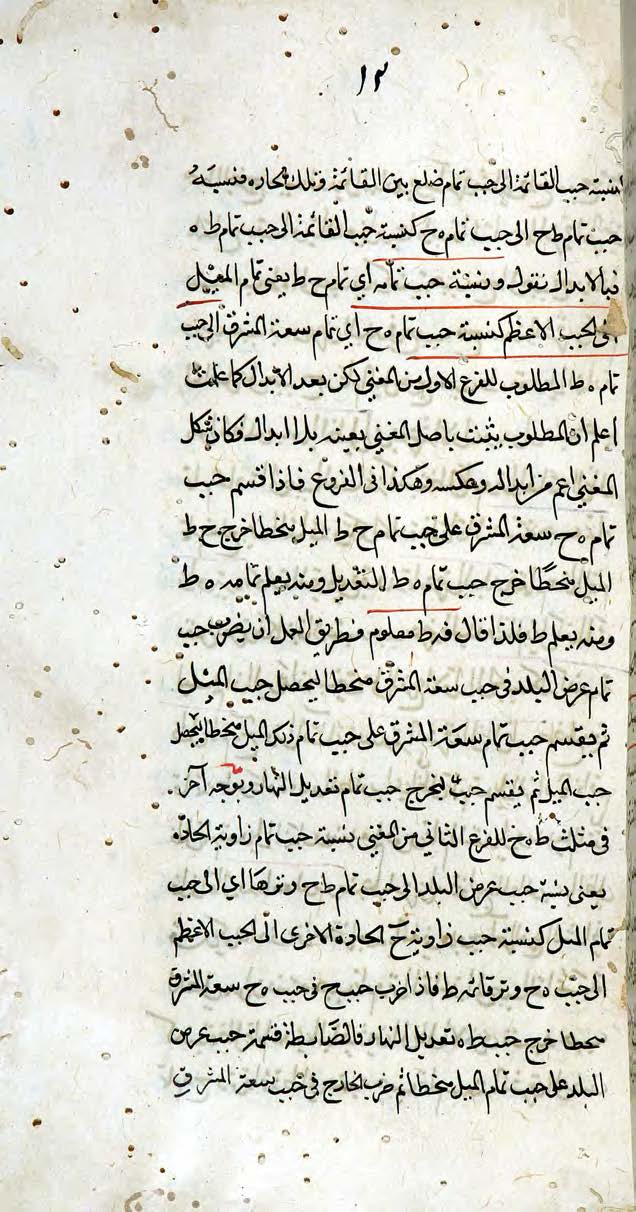 ١٣
كنسبة جيب القائمة الى جيب تمام ضلع بين القائمة وتلك الحاده فنسبة
جيب تمام ط ح الى جيب تمام ه ح كنسبة جيب القائمة الى جيب تمام ط ه
فبالابدال نقول ونسبة جيب تمامه أي تمام ح ط يعنى تمام الميل
الى الجيب الاعظم كنسبة جيب تمام ه ح أي تمام سعة المشرق الى جيب
تمام ه ط المطلوب للفرع الاول من المغني لكن بعد الابدال كما علمت
اعلم ان المطلوب يثبت باصل المغني بعينه بلا ابدال فكان شكل
المغني اعم من ابداله وعكسه وهكذا فى الفروع فاذا قسم جيب
تمام ه ح سعة المشرق على جيب تمام ح ط الميل منحطا خرج ح ط
الميل منحطًا خرج جيب تمام ه ط التعديل ومنه يعلم تمامه ه ط
ومنه يعلم ط فلذا قال فه ط معلوم وطريق العمل ان يضرب جيب
تمام عرض البلد فى جيب سعة المشرق منحطا ليحصل جيب الميل
ثم يقسم جيب تمام سعة المشرق على جيب تمام ذلك الميل منحطا ليحصل
جيب الميل ثم يقسم جيب ليخرج جيب تمام تعديل النهار وبوجه آخر .
فى مثلث ط ه ح للفرع الثاني من المغني نسبة جيب تمام زاوية الحادة
يعنى نسبة جيب عرض البلد الى جيب تمام ط ح وترها اي الى جيب
تمام الميل كنسبة جيب زاوية ح الحادة الاخرى الى الجيب الاعظم
الى جيب ه ح وتر قائمه ط فاذا ضرب جيب ح فى جيب ه ح سعة المشرق
منحطا خرج جيب ط ه تعديل النهار فالضابطة قسمة جيب عرض
البلد على جيب تمام الميل منحطا ثم ضرب الخارج فى جيب سعة المشرق